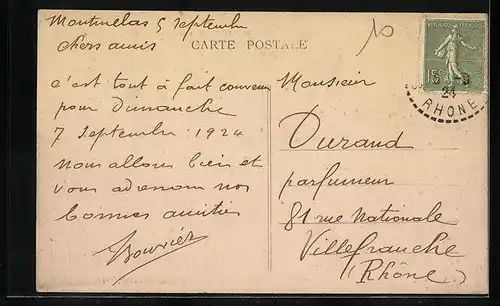 Montmelas 5 Septembre
chers amis
CARTE POSTALE
10
c'est tout à fait convenu
pour Dimanche
7 Septembre 1924
nous allons bien et
vous adressons nos
bonnes amitiés
Bouvier
Monsieur
Durand
parfumeur
81 rue Nationale
Villefranche
(Rhône)
15
5 -9
24
RHONE